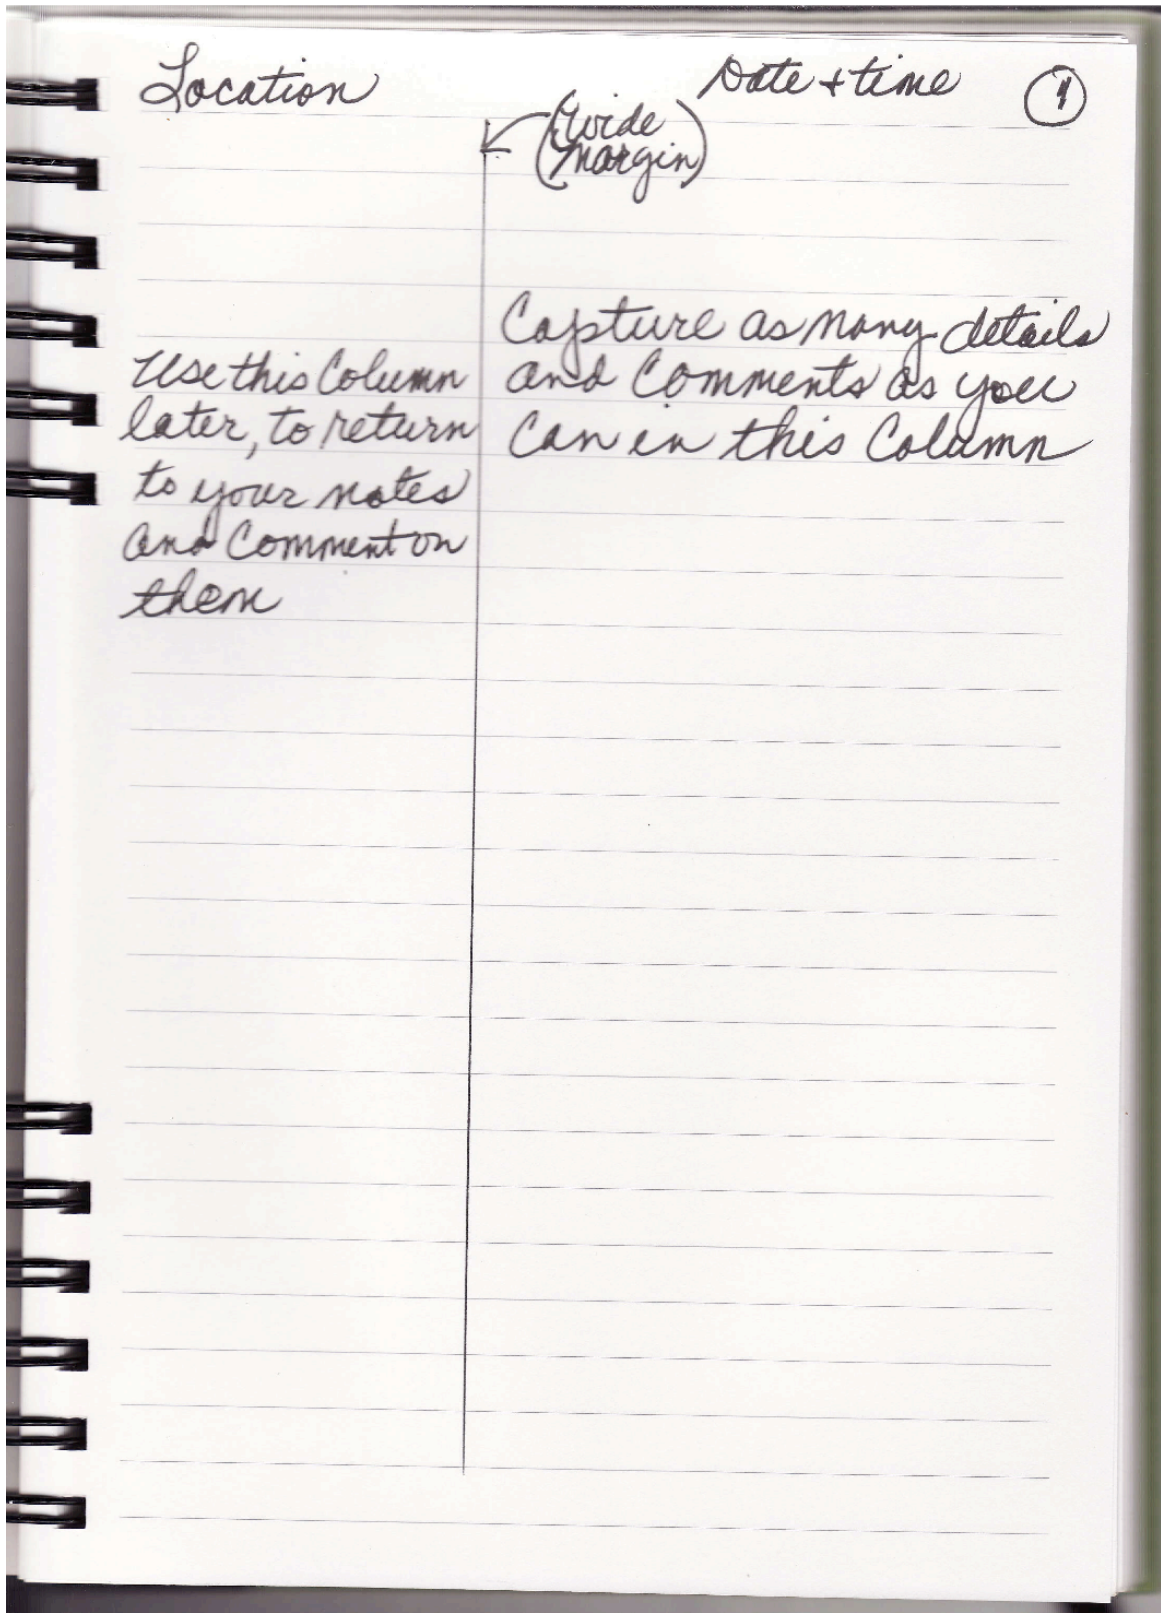 Location
Date + time
1
(Wide
Margin)
Use this Column
later, to return
to your notes
and Comment on
them
Capture as many details
and Comments as you
Can in this Column